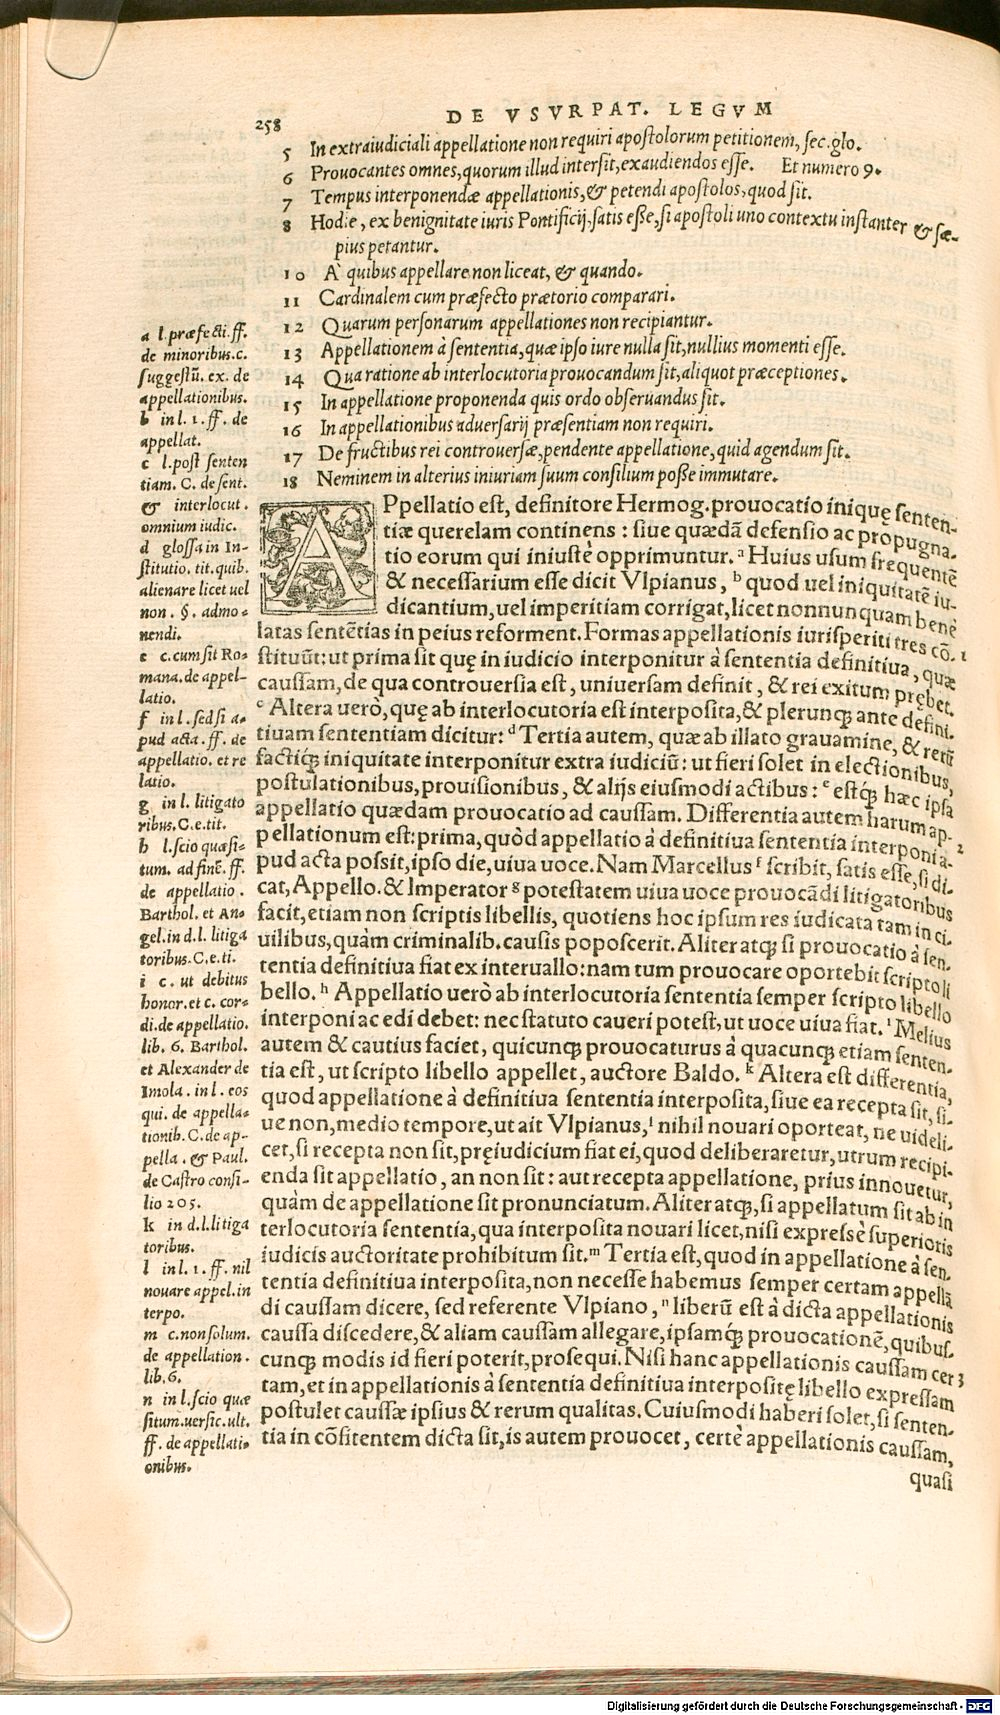 258
DE VSVRPAT. LEGVM
5 In extraiudiciali appellatione non requiri apostolorum petitionem, sec. glo.
6 Prouocantes omnes, quorum illud intersit, exaudiendos esse. Et numero 9.
7 Tempus interponendæ appellationis, & petendi apostolos, quod sit.
8 Hodie, ex benignitate iuris Pontificij, satis esse, si apostoli uno contextu instanter & sæ-
pius petantur.
10 A quibus appellare non liceat, & quando.
11 Cardinalem cum præfecto prætorio comparari.
12 Quarum personarum appellationes non recipiantur.
13 Appellationem à sententia, quæ ipso iure nulla sit, nullius momenti esse.
14 Qua ratione ab interlocutoria prouocandum sit, aliquot præceptiones.
15 In appellatione proponenda quis ordo obseruandus sit.
16 In appellationibus aduersarij præsentiam non requiri.
17 De fructibus rei controuersæ, pendente appellatione, quid agendum sit.
18 Neminem in alterius iniuriam suum consilium posse immutare.
APpellatio est, definitore Hermog. prouocatio iniquę senten-
tiæ querelam continens : siue quædā defensio ac propugna-
tio eorum qui iniustè opprimuntur. a Huius usum frequentē
& necessarium esse dicit Vlpianus, b quod uel iniquitatē iu-
dicantium, uel imperitiam corrigat, licet nonnunquam benè
latas sentētias in peius reforment. Formas appellationis iurisperiti tres cō- 1
stituūt: ut prima sit quę in iudicio interponitur à sententia definitiua, quæ
caussam, de qua controuersia est, uniuersam definit, & rei exitum prębet.
c Altera uerò, quę ab interlocutoria est interposita, & plerunq; ante defini-
tiuam sententiam dicitur: d Tertia autem, quæ ab illato grauamine, & rerū
factiq́; iniquitate interponitur extra iudiciū: ut fieri solet in electionibus,
postulationibus, prouisionibus, & alijs eiusmodi actibus : e estq́; hæc ipsa
appellatio quædam prouocatio ad caussam. Differentia autem harum ap-
pellationum est: prima, quòd appellatio à definitiua sententia interponi a- 2
pud acta possit, ipso die, uiua uoce. Nam Marcellus f scribit, satis esse, si di-
cat, Appello. & Imperator g potestatem uiua uoce prouocādi litigatoribus
facit, etiam non scriptis libellis, quotiens hoc ipsum res iudicata tam in ci-
uilibus, quàm criminalib. causis poposcerit. Aliter atq; si prouocatio à sen-
tentia definitiua fiat ex interuallo: nam tum prouocare oportebit scripto li
bello. h Appellatio uerò ab interlocutoria sententia semper scripto libello
interponi ac edi debet: nec statuto caueri potest, ut uoce uiua fiat. i Melius
autem & cautius faciet, quicunq; prouocaturus à quacunq; etiam senten-
tia est, ut scripto libello appellet, auctore Baldo. k Altera est differentia,
quod appellatione à definitiua sententia interposita, siue ea recepta sit, si-
ue non, medio tempore, ut ait Vlpianus, l nihil nouari oporteat, ne uideli-
cet, si recepta non sit, pręiudicium fiat ei, quod deliberaretur, utrum recipi-
enda sit appellatio, an non sit : aut recepta appellatione, prius innouetur,
quàm de appellatione sit pronunciatum. Aliter atq;, si appellatum sit ab in
terlocutoria sententia, qua interposita nouari licet, nisi expressè superioris
iudicis auctoritate prohibitum sit. m Tertia est, quod in appellatione à sen-
tentia definitiua interposita, non necesse habemus semper certam appellā
di caussam dicere, sed referente Vlpiano, n liberū est à dicta appellationis
caussa discedere, & aliam caussam allegare, ipsamq́; prouocationē, quibus-
cunq; modis id fieri poterit, prosequi. Nisi hanc appellationis caussam cer 3
tam, et in appellationis à sententia definitiua interpositę libello expressam
postulet caussæ ipsius & rerum qualitas. Cuiusmodi haberi solet, si senten-
tia in cōfitentem dicta sit, is autem prouocet, certè appellationis caussam,
quasi
a l. præfecti. ff.
de minoribus. c.
suggestū. ex. de
appellationibus.
b in l. 1. ff. de
appellat.
c l. post senten
tiam. C. de sent.
& interlocut.
omnium iudic.
d glossa in In-
stitutio. tit. quib.
alienare licet uel
non. §. admo-
nendi.
e c. cum sit Ro-
mana. de appel-
latio.
f in l. sed si a-
pud acta. ff. de
appellatio. et re
latio.
g in l. litigato
ribus. C. e. tit.
h l. scio quæsi-
tum. ad finē. ff.
de appellatio.
Barthol. et An-
gel. in d. l. litiga
toribus. C. e. ti.
i c. ut debitus
honor. et c. cor-
di. de appellatio.
lib. 6. Barthol.
et Alexander de
Imola. in l. eos
qui. de appella-
tionib. C. de ap-
pella. & Paul.
de Castro consi-
lio 205.
k in d. l. litiga
toribus.
l in l. 1. ff. nil
nouare appel. in
terpo.
m c. non solum.
de appellation.
lib. 6.
n in l. scio quæ
situm. uersic. ult.
ff. de appellati-
onibus.
Digitalisierung gefördert durch die Deutsche Forschungsgemeinschaft - DFG